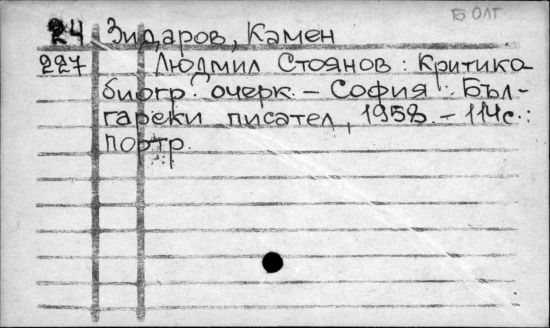 Б ОЛГ.
24 Зидаров, Камен
227 Людмил Стоянов : Критико-
биогр. очерк. – София : Бъл-
гарски писател, 1958. – 114 с. :
портр.